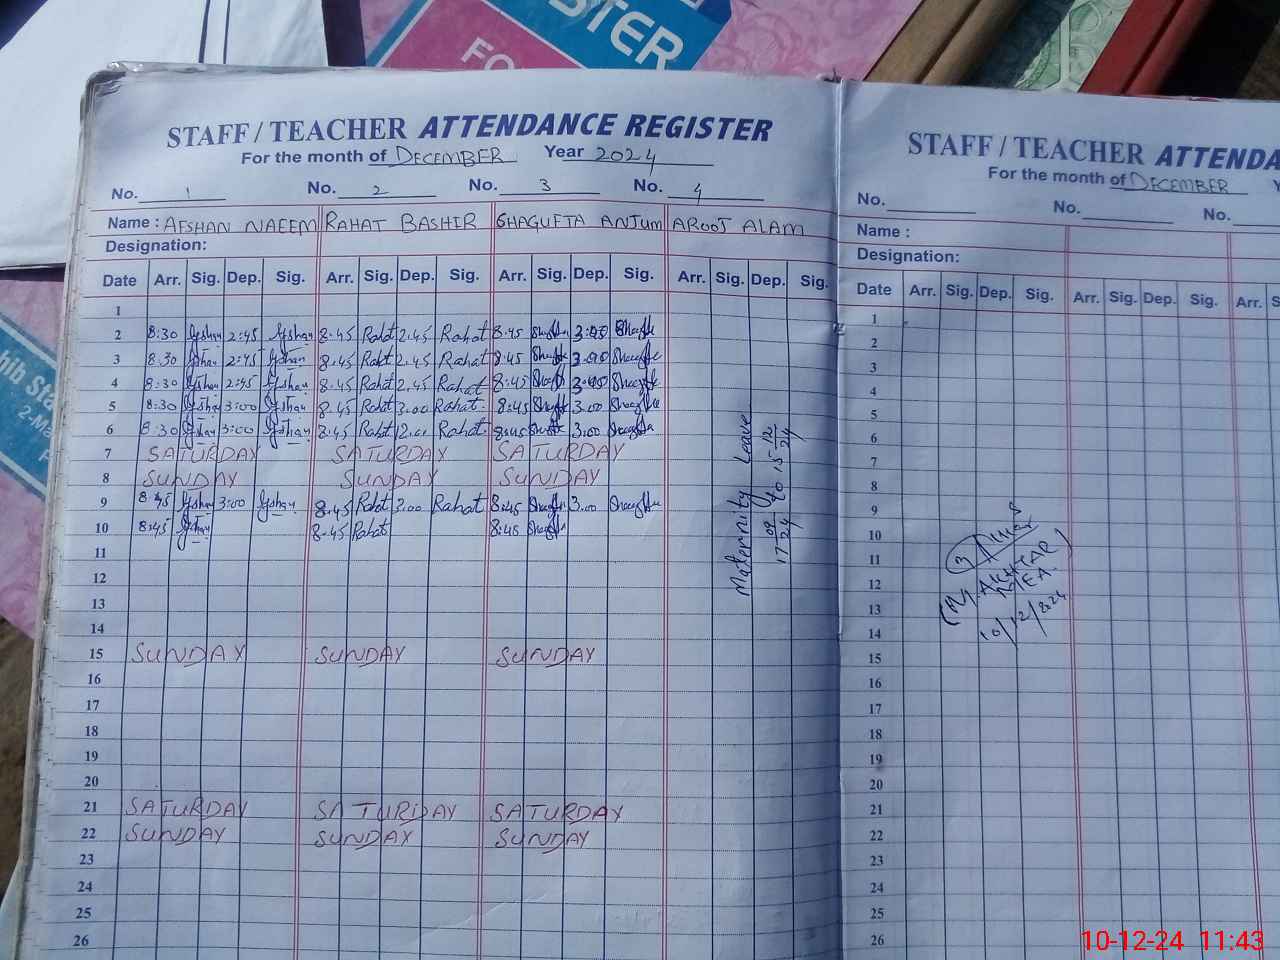 STER
FO
hib Sta
2-Ma
STAFF / TEACHER ATTENDANCE REGISTER
For the month of DECEMBER Year 2024
No. 1 No. 2 No. 3 No. 4
Name : AFSHAN NAEEM RAHAT BASHIR SHAGUFTA ANJUM AROOJ ALAM
Designation:
Date Arr. Sig. Dep. Sig. Arr. Sig. Dep. Sig. Arr. Sig. Dep. Sig. Arr. Sig. Dep. Sig.
1
2 8:30 Afshan 2:45 Afshan 8.45 Rahat 2.45 Rahat 8:45
3 8:30 Afshan 2:45 Afshan 8.45 Rahat 2.45 Rahat 8:45
4 8:30 Afshan 2:45 Afshan 8.45 Rahat 2.45 Rahat 8:45
5 8:30 Afshan 3:00 Afshan 8.45 Rahat 3.00 Rahat 8:45 3.00
6 8:30 Afshan 3:00 Afshan 8.45 Rahat 12.00 Rahat 8:45 3:00
7 SATURDAY SATURDAY SATURDAY
8 SUNDAY SUNDAY SUNDAY
9 8:45 Afshan 3:00 Afshan 8.45 Rahat 3.00 Rahat 8:45 3:00
10 8:45 Afshan 8.45 Rahat 8:45
11
12
13
14
15 SUNDAY SUNDAY SUNDAY
16
17
18
19
20
21 SATURDAY SATURDAY SATURDAY
22 SUNDAY SUNDAY SUNDAY
23
24
25
26
Maternity Leave
17 09 24 to 15 12 24
STAFF / TEACHER ATTENDA
For the month of DECEMBER Y
No. No. No.
Name :
Designation:
Date Arr. Sig. Dep. Sig. Arr. Sig. Dep. Sig. Arr. S
1
2
3
4
5
6
7
8
9
10
11
12
13
14
15
16
17
18
19
20
21
22
23
24
25
26
AKHTAR
MEA
10/12/2024
10-12-24 11:43